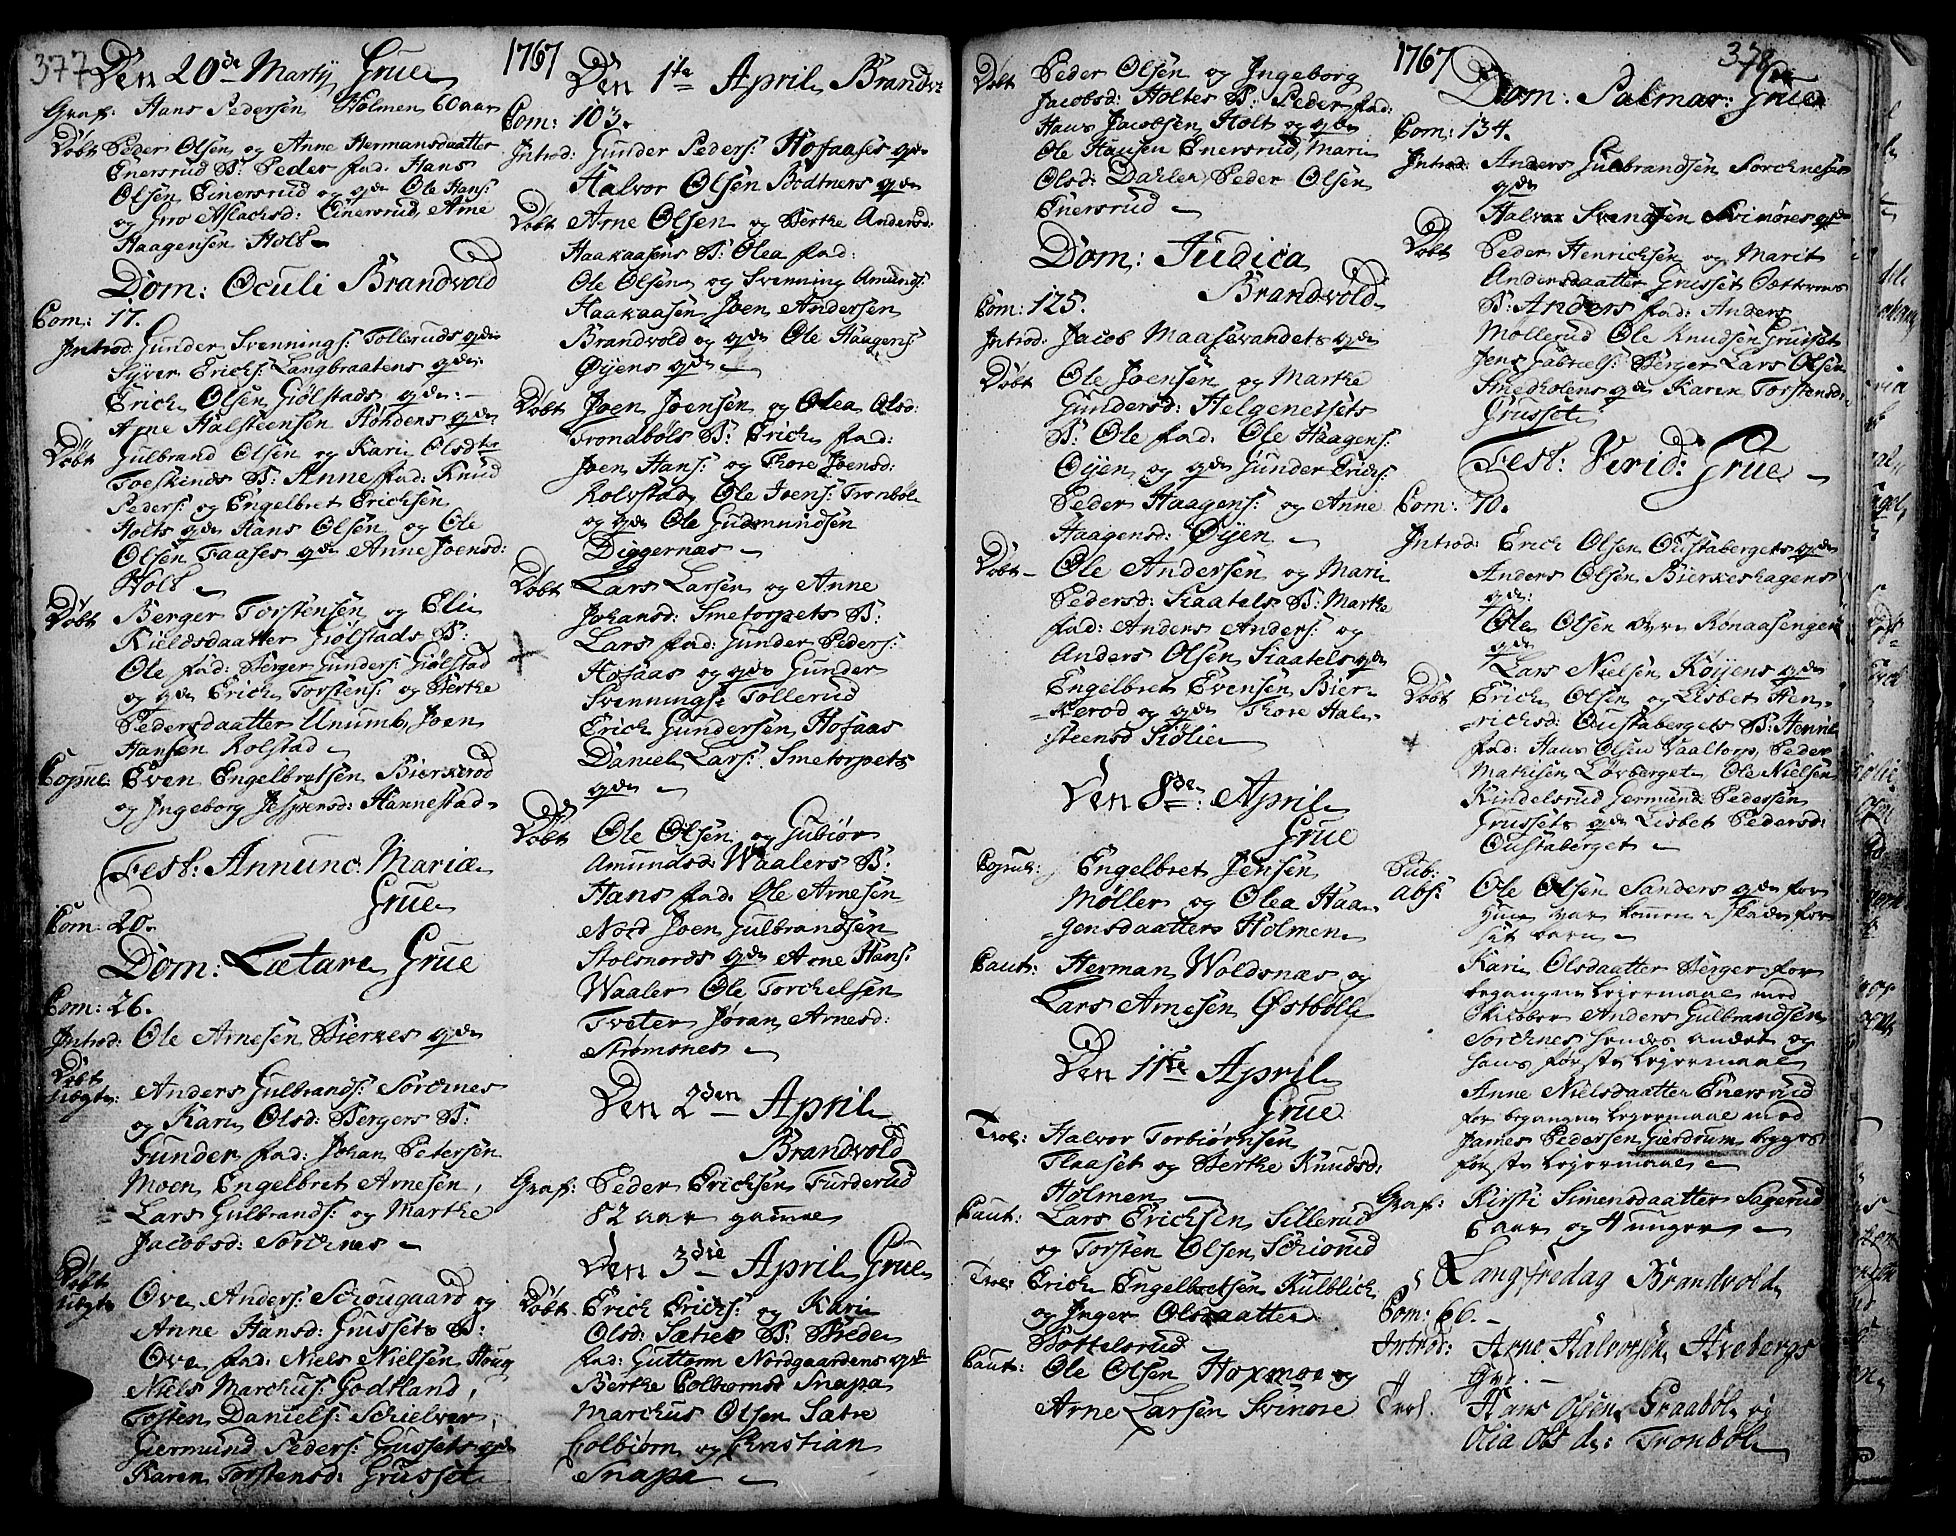 377
Den 20de Martij Grue
Graf: Hans Pedersen Holmen 60 aar
Døbt Peder Olsen og Anne Hermansdaatter
Enersrud B: Peder fad: Hans
Olsen Einersrud og qde Ole Hans:
og Gro Aslachsd: Einersrud, Arne
Haagensen Holt
Dom: Oculi Brandvold
Com: 17.
Introd: Gunder Svennings: Tolleruds qde
Syver Erichs: Langbraatens qde:
Erich Olsen Giølstads qde:
Arne Halsteensen Hohdens qde
Døbt Gulbrand Olsen og Kari Olsdtr
Toeskinds B: Anne fad: Knud
Peders: og Engelbret Erichsen
Holts qde Hans Olsen og Ole
Olsen Faases qde Anne Joensd:
Holt
Døbt Berger Torstensen og Eli
Kieldsdaatter Giølstads B:
Ole fad: Berger Gunders: Giølstad
og qde Erich Torstens: og Berthe
Pedersdaatter Unumb, Joen
Hansen Rolstad
Copul: Even Engelbretsen Bierkerod
og Ingeborg Jespersd: Hannestad
Fest: Annunc: Mariæ
Grue
Com: 20.
Dom: Lætare Grue
Com: 26.
Introd: Ole Arnesen Bierkes qde
Døbt
uegte: Anders Gulbrands: Sorchnes
og Kari Olsd: Bergers B:
Gunder fad: Johan Petersen
Moen Engelbret Arnesen,
Lars Gulbrands: og Marthe
Jacobsd: Sorchnes
Døbt
uegte Ove Anders: Schougaard og
Anne Hansd: Grussets B:
Ove fad: Niels Nielsen Houg
Niels Marchus: Godtland,
Tosten Daniels: Schielver,
Giermund Peders: Grussets qde
Karen Torstensd: Grusset
1767
Den 1te April Brandv:
Com: 103.
Introd: Gunder Peders: Hofaases qde
Halvor Olsen Bodtners qde
Døbt Arne Olsen og Berthe Andersd:
Haakaasens B: Olea fad:
Ole Olsen og Svenning Amunds:
Haakaasen Joen Andersen
Brandvold og qde Ole Haagens:
Øyens qde
Døbt Joen Joensen og Olea Olsd:
Trondbøls B: Erich fad:
Joen Hans: og Thore Joensd:
Rolvstad Ole Ivens: Tronbøl
og qde Ole Gudmundsen
Diggernæs
Døbt Lars Larsen og Anne
Johansd: Smetorpets B:
Lars fad: Gunder Peders:
Hofaas og qde Gunder
Svennings: Tollerud
Erich Gundersen Hofaas
Daniel Lars: Smetorpets
qde
Døbt Ole Olsen og Gubiør
Amundsd: Waalers B:
Hans fad: Ole Arnesen
Nord Joen Gulbrandsen
Stolsnords qde Arne Hans:
Waaler Ole Torchelsen
Tveter Jøran Arnesd:
Strømsnes
Den 2den April
Brandvold
Graf: Peder Erichsen Furderud
82 aar gamle
Den 3die April Grue
Døbt Erich Erichs: og Kari
Olsd: Sætres B: Brede
fad: Guttorm Nordgaardens qde
Berthe Colbiørnsd Snapa
Marchus Olsen Sætre
Colbiørn og Christian
Snapa
Døbt Peder Olsen og Ingeborg
Jacobsd: Holtes B: Peder fad:
Hans Jacobsen Holt og qde
Ole Hansen Enersrud, Mari
Olsd: Dahlen, Peder Olsen
Enersrud
Dom: Judica
Brandvold
Com: 125.
Introd: Jacob Maasevandets qde
Døbt Ole Joensen og Marthe
Gundersd: Helgenessets
B: Ole fad: Ole Haagens:
Oÿen og qde Gunder Erichs:
Peder Haagens: og Anne
Haagensd: Øyen
Døbt Ole Andersen og Mari
Pedersd: Siaatels B: Marthe
fad: Anders Anders: og
Anders Olsen Siaatels qde
Engelbret Evensen Bier-
kerod og qde Thore Hal-
steensd Siølie
Den 8de: April
Grue
Copul: Engelbret Jensen
Møller og Olea Haa-
gensdaatter Holmen
Caut: Herman Woldsnæs og
Lars Arnesen Østbølle
Den 11te April
Grue
Trol: Halvor Torbiørnsen
Flaaset og Berthe Knudsd:
Holmen
Caut: Lars Erichsen Sillerud
og Torsten Olsen Schiorud
Trol: Erich Engelbretsen Kulblich
og Inger Olsdaatter
Bottelsrud
Caut: Ole Olsen Hoxmoe og
Arne Larsen Svinore
1767
378
Dom: Palmar: Grue
Com: 134.
Introd: Anders Gulbrandsen Sorchnesets
qde
Halvor Svendsen Svinores qde
Døbt Peder Henrichsen og Marit
Andersdaatter Grusset
B: Anders fad: Anders
Møllerud Ole Knudsen Grusset
Jens Gabriels: Berger Lars Olsen
Smedholens qde Karen Torstensd:
Grusset
Fest: Virid: Grue
Com: 70.
Introd: Erich Olsen Oustabergets qde
Anders Olsen Bierkeshagens
qde:
Ole Olsen Rønaasengen
qde
Lars Nielsen Køijens qde
Døbt Erich Olsen og Lisbet Hen-
richsd: Oustabergets B:
fad: Hans Olsen Vaaltorp, Peder
Mathisen Løvberget Ole Nielsen
Kindelsrud Germund Pedersen
Grussets qde Lisbet Pedersd:
Oustaberget
Pub:
abs: Ole Olsen Sanders qde for
hun var kommen i skade for
sit barn
Kari Olsdaatter Berger for
begangne leiermaal med
Anders Gulbrandsen
Sorchnes hendes andet og
hans første leiermaal
Anne Nielsdaatter Enersrud
for begangne leiermaal med
James Pedersen Gierdrum begges
første leiermaal
Graf: Kirsti Simensdaatter Sagerud
6 aar og 4 uger
Langfredag Brandvold
Com: 66.
Introd: Arne Halvorsen Hvebergs
qde.
Trol: Hans Olsen Graabøl og
Olia Olsd: Tronbøl